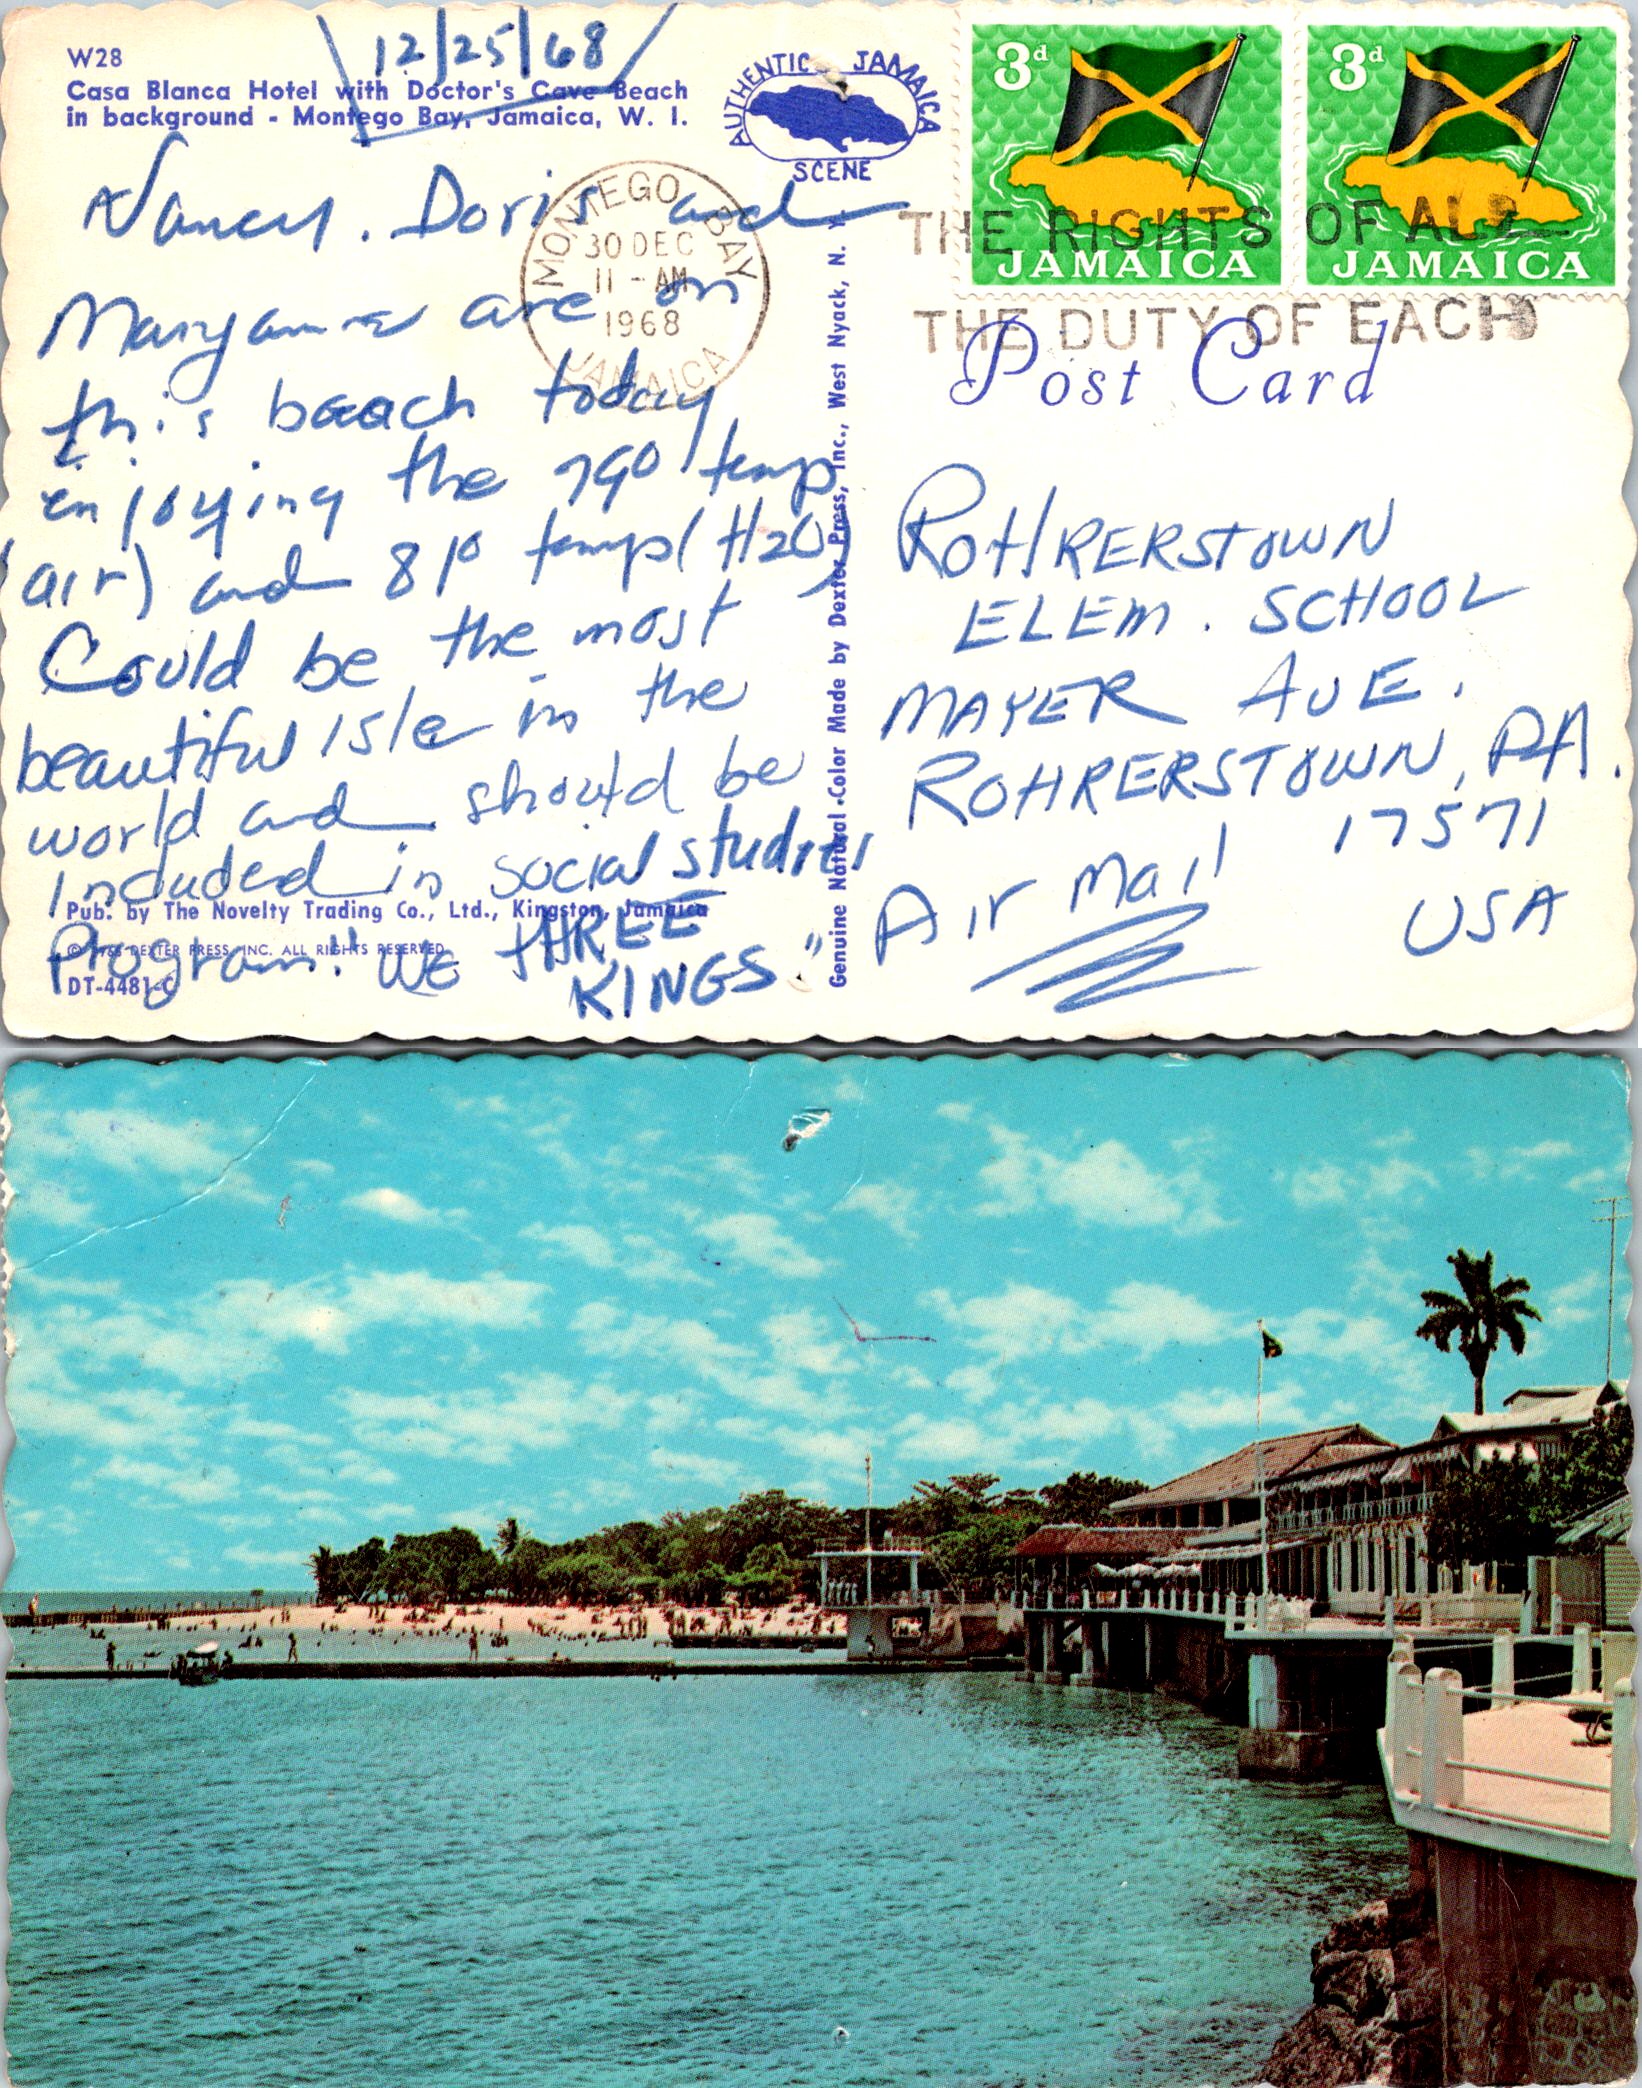 W28
Casa Blanca Hotel with Doctor's Cave Beach
in background - Montego Bay, Jamaica, W. I.
12/25/68
AUTHENTIC JAMAICA
SCENE
MONTEGO BAY
30 DEC
11 - AM
1968
JAMAICA
3d
JAMAICA
3d
JAMAICA
THE RIGHTS OF ALL
THE DUTY OF EACH
Post Card
Nancy. Doris and
Maryanne are on
this beach today
enjoying the 79° temp
(air) and 81° temp (H2O)
Could be the most
beautiful isle in the
world and should be
included in social studies
Program! "WE THREE
KINGS"
Pub. by The Novelty Trading Co., Ltd., Kingston, Jamaica
DEXTER PRESS, INC. ALL RIGHTS RESERVED
DT-4481-C
Genuine Natural Color Made by Dexter Press, Inc., West Nyack, N. Y.
ROHRERSTOWN
ELEM. SCHOOL
MAYER AVE.
ROHRERSTOWN, PA.
17571
Air Mail
USA